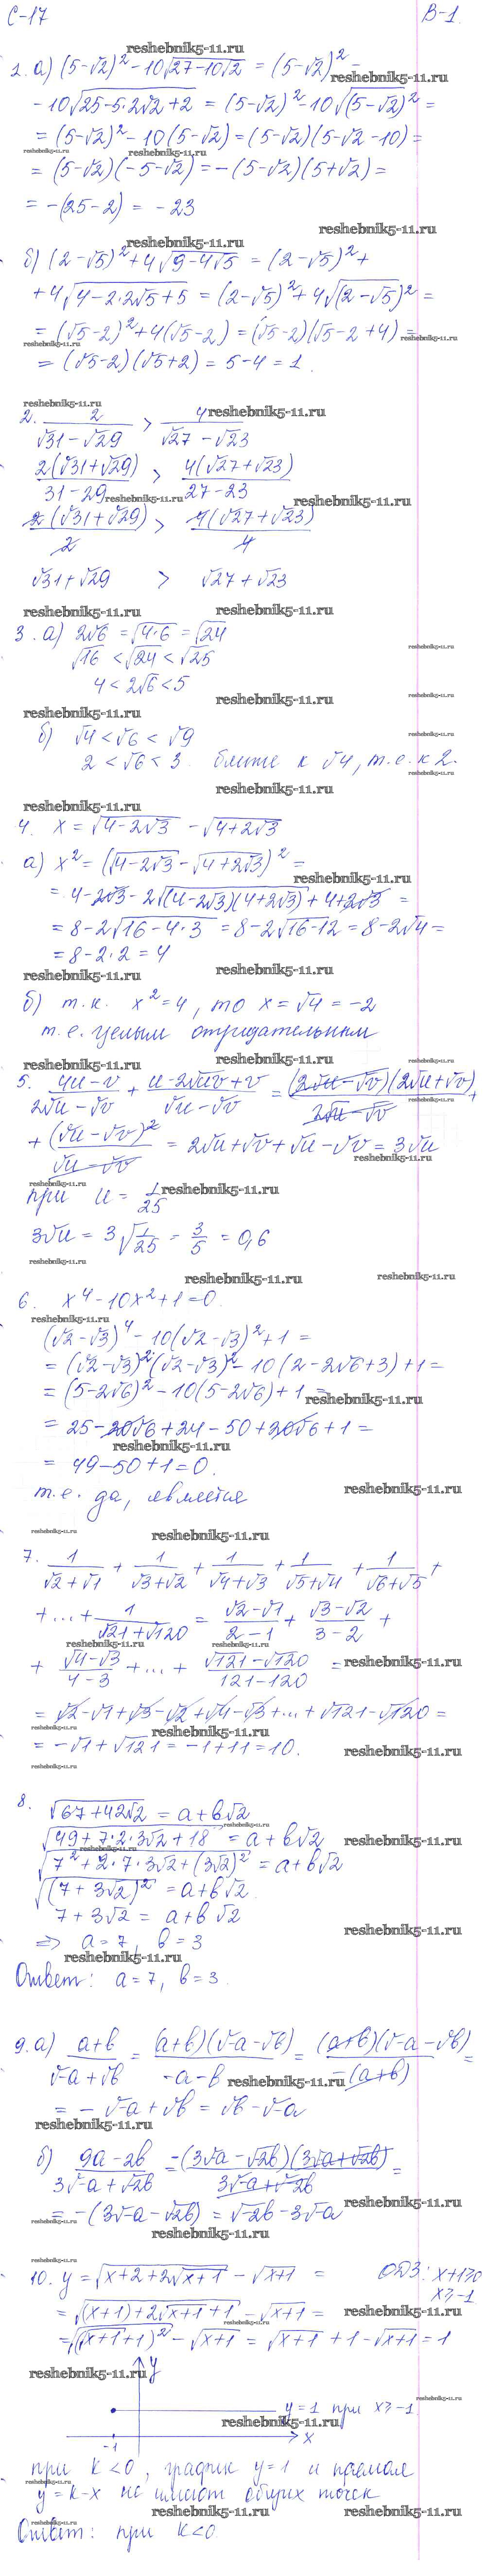 С-17 В-1.
1. а) (5-√2)² - 10√(27-10√2) = (5-√2)² -
- 10√(25-5·2√2+2) = (5-√2)² - 10√(5-√2)² =
= (5-√2)² - 10(5-√2) = (5-√2)(5-√2-10) =
= (5-√2)(-5-√2) = -(5-√2)(5+√2) =
= -(25-2) = -23
б) (2-√5)² + 4√(9-4√5) = (2-√5)² +
+ 4√(4-2·2√5+5) = (2-√5)² + 4√(2-√5)² =
= (√5-2)² + 4(√5-2) = (√5-2)(√5-2+4) =
= (√5-2)(√5+2) = 5-4 = 1.
2. 2/(√31-√29) > 4/(√27-√23)
2(√31+√29)/(31-29) > 4(√27+√23)/(27-23)
2(√31+√29)/2 > 4(√27+√23)/4
√31+√29 > √27+√23
3. а) 2√6 = √(4·6) = √24
√16 < √24 < √25
4 < 2√6 < 5
б) √4 < √6 < √9
2 < √6 < 3. ближе к √4, т.е. к 2.
4. x = √(4-2√3) - √(4+2√3)
а) x² = (√(4-2√3) - √(4+2√3))² =
= 4-2√3 - 2√((4-2√3)(4+2√3)) + 4+2√3 =
= 8-2√(16-4·3) = 8-2√(16-12) = 8-2√4 =
= 8-2·2 = 4
б) т.к. x² = 4, то x = √4 = -2
т.е. целым отрицательным
5. (4u-v)/(2√u-√v) + (u-2√uv+v)/(√u-√v) = (2√u-√v)(2√u+√v)/(2√u-√v) +
+ (√u-√v)²/(√u-√v) = 2√u+√v+√u-√v = 3√u
при u = 1/25
3√u = 3√(1/25) = 3/5 = 0,6
6. x⁴-10x²+1=0.
(√2-√3)⁴ - 10(√2-√3)² + 1 =
= (√2-√3)²(√2-√3)² - 10(2-2√6+3) + 1 =
= (5-2√6)² - 10(5-2√6) + 1 =
= 25-20√6+24-50+20√6+1 =
= 49-50+1=0.
т.е. да, является
7. 1/(√2+√1) + 1/(√3+√2) + 1/(√4+√3) + 1/(√5+√4) + 1/(√6+√5) +
+ ... + 1/(√121+√120) = (√2-√1)/(2-1) + (√3-√2)/(3-2) +
+ (√4-√3)/(4-3) + ... + (√121-√120)/(121-120) =
= √2-√1+√3-√2+√4-√3+...+√121-√120 =
= -√1+√121 = -1+11 = 10.
8. √(67+42√2) = a+b√2
√(49+7·2·3√2+18) = a+b√2
√(7²+2·7·3√2+(3√2)²) = a+b√2
√(7+3√2)² = a+b√2
7+3√2 = a+b√2
=> a=7, b=3
Ответ: a=7, b=3.
9. а) (a+b)/(√-a+√b) = (a+b)(√-a-√b)/(-a-b) = (a+b)(√-a-√b)/(-(a+b)) =
= -√-a+√b = √b-√-a
б) (9a-2b)/(3√-a+√-2b) = -(3√-a-√-2b)(3√-a+√-2b)/(3√-a+√-2b) =
= -(3√-a-√-2b) = √-2b-3√-a
10. y = √(x+2+2√(x+1)) - √(x+1) = ОДЗ: x+1≥0
x≥-1
= √((x+1)+2√(x+1)+1) - √(x+1) =
= √(√(x+1)+1)² - √(x+1) = √(x+1)+1-√(x+1) = 1
y
y=1 при x≥-1
-1 x
при k<0, график y=1 и прямая
y=k-x не имеют общих точек
Ответ: при k<0.
reshebnik5-11.ru